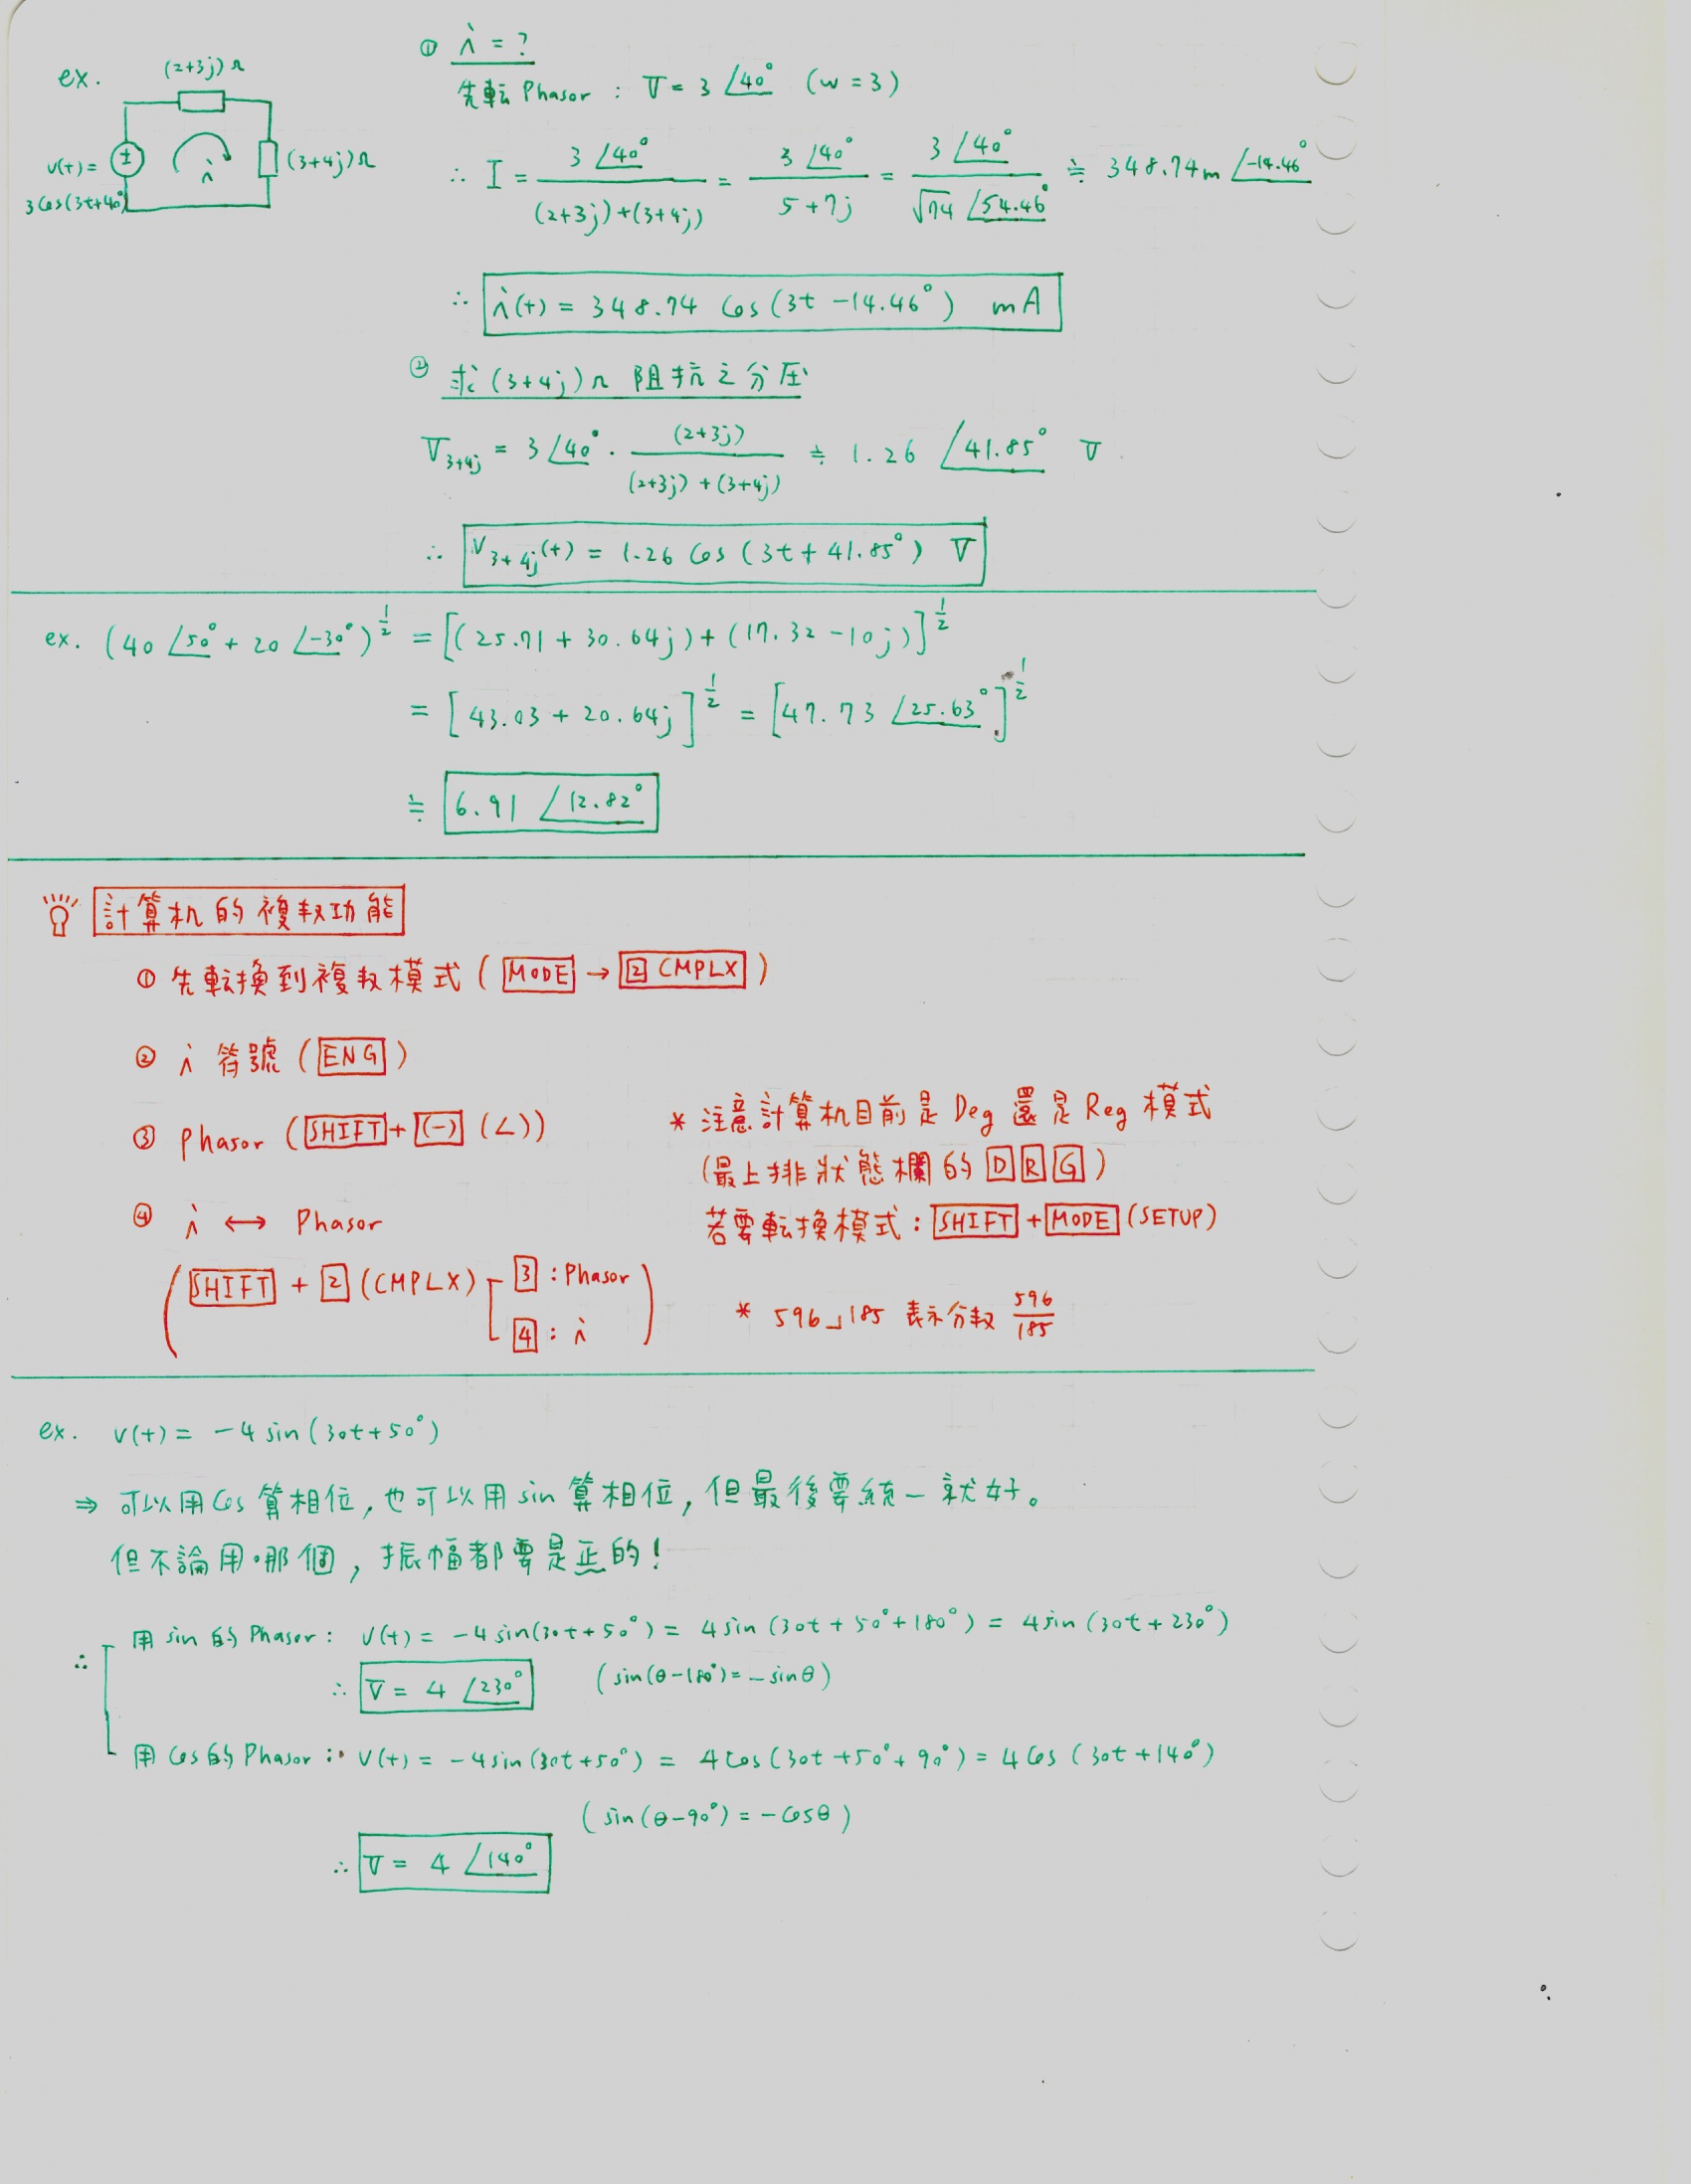 ex.
(2+3j)Ω
v(t)=
3cos(3t+40°)
i
(3+4j)Ω
① i = ?
先転 Phasor : V = 3∠40° (w=3)
∴ I = 3∠40° / ((2+3j)+(3+4j)) = 3∠40° / (5+7j) = 3∠40° / (√74 ∠54.46°) ≒ 348.74m ∠-14.46°
∴ i(t) = 348.74 cos(3t-14.46°) mA
② 求(3+4j)Ω 阻抗之分压
V3+4j = 3∠40° · (2+3j) / ((2+3j)+(3+4j)) ≒ 1.26 ∠41.85° V
∴ V3+4j(t) = 1.26 cos(3t+41.85°) V
ex. (40∠50° + 20∠-30°)^(1/2) = [(25.71+30.64j)+(17.32-10j)]^(1/2)
= [43.03+20.64j]^(1/2) = [47.73∠25.63°]^(1/2)
≒ 6.91 ∠12.82°
計算机的複数功能
① 先転換到複数模式 ( MODE → 2 CMPLX )
② i 符號 ( ENG )
③ Phasor ( SHIFT + (-) (∠))
④ i ↔ Phasor
( SHIFT + 2 (CMPLX) 3 : Phasor
4 : i )
* 注意計算机目前是 Deg 還是 Reg 模式
(最上排狀態欄的 D R G )
若要転換模式 : SHIFT + MODE (SETUP)
* 596⌟185 表示分数 596/185
ex. v(t) = -4 sin(30t+50°)
⇒ 可以用 cos 算相位, 也可以用 sin 算相位, 但最後要統一就好。
但不論用哪個, 振幅都要是正的!
∴ 用 sin 的 Phasor : v(t) = -4sin(30t+50°) = 4sin(30t+50°+180°) = 4sin(30t+230°)
∴ V = 4 ∠230° (sin(θ-180°) = -sinθ)
用 cos 的 Phasor : v(t) = -4sin(30t+50°) = 4cos(30t+50°+90°) = 4cos(30t+140°)
(sin(θ-90°) = -cosθ)
∴ V = 4 ∠140°